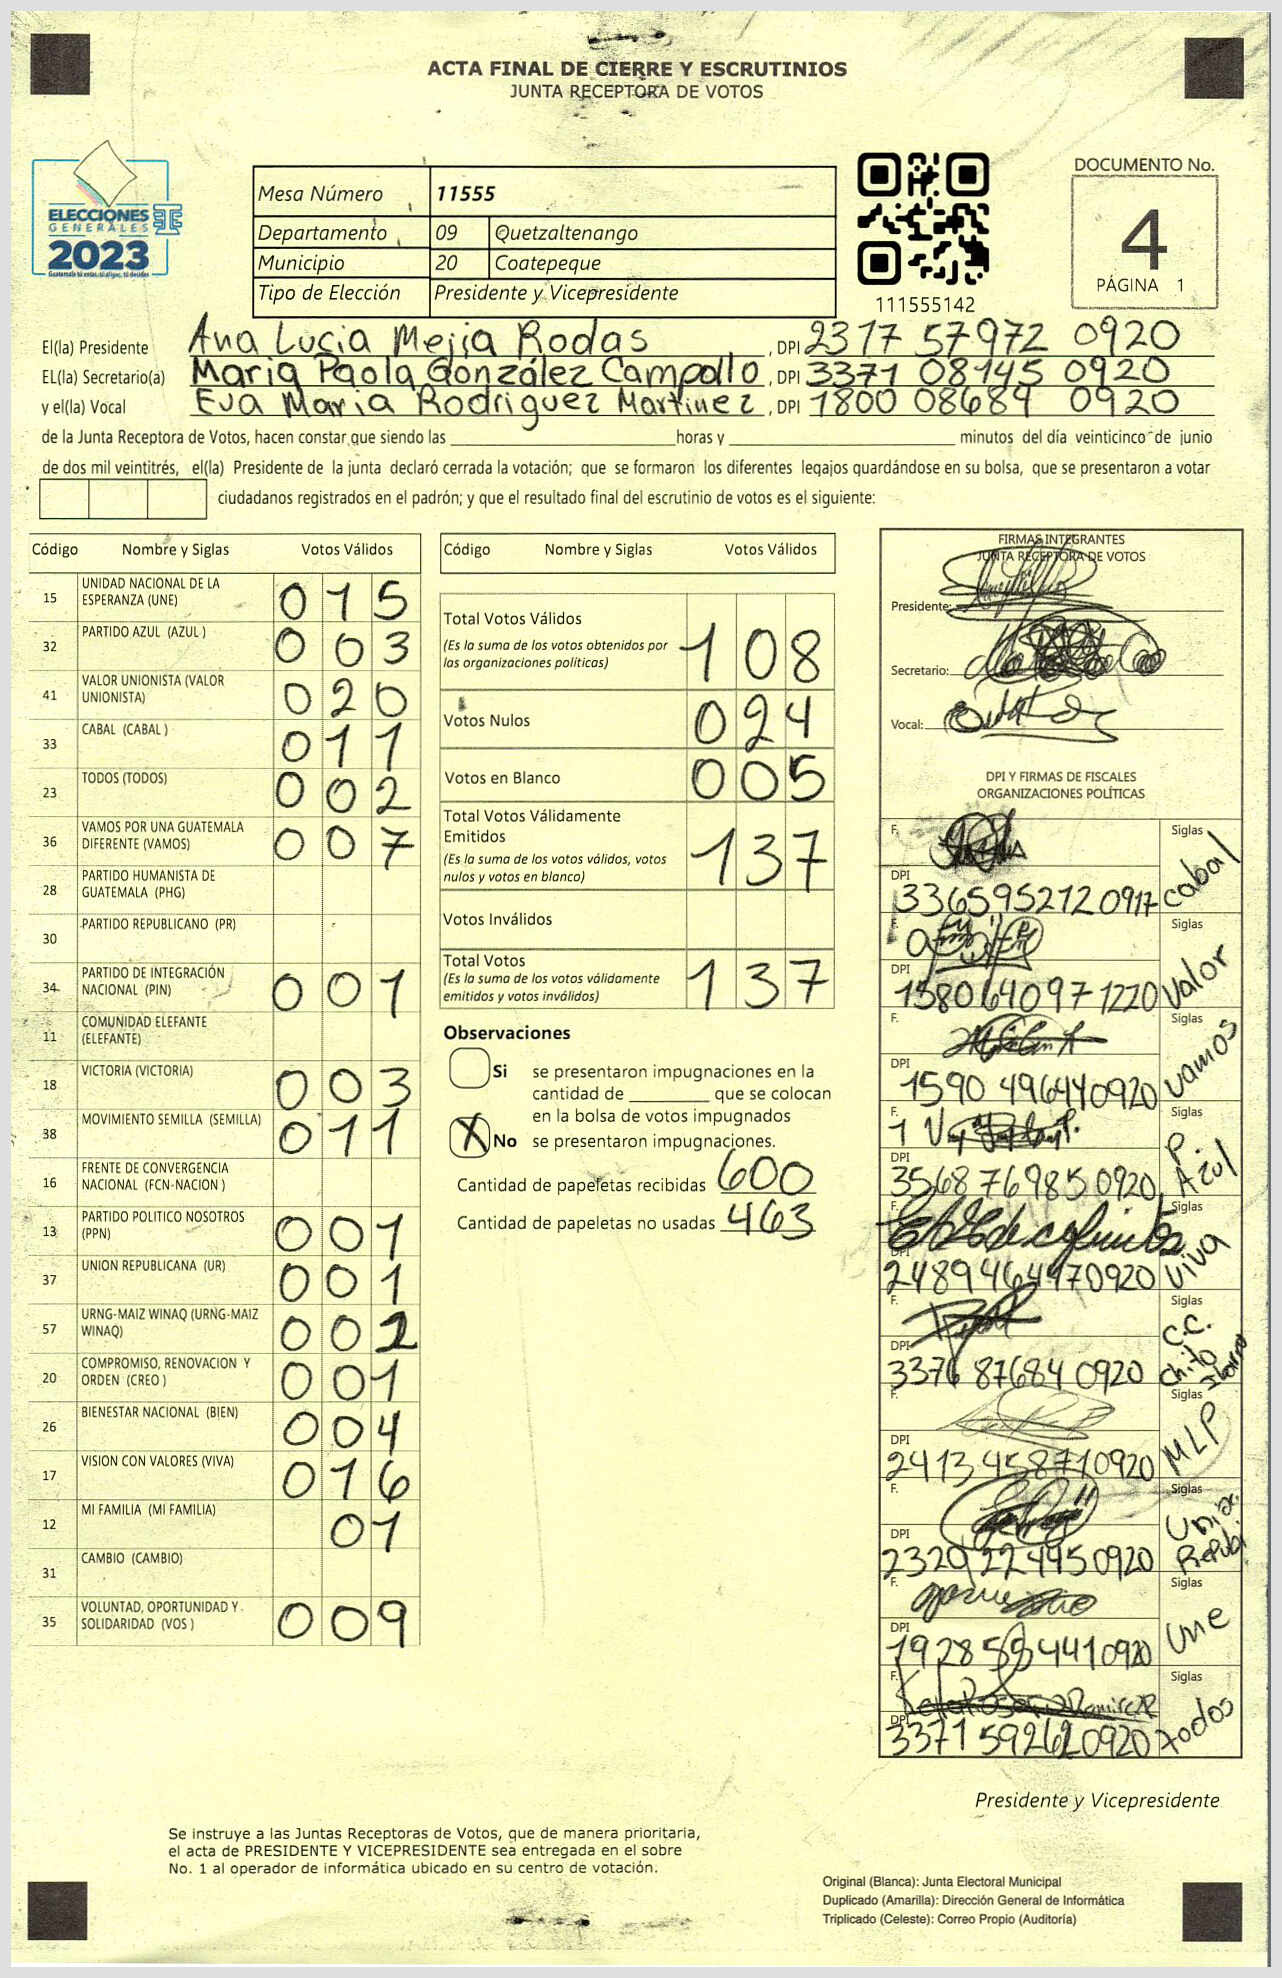 ACTA FINAL DE CIERRE Y ESCRUTINIOS
JUNTA RECEPTORA DE VOTOS
ELECCIONES
GENERALES
2023
Guatemala tú estas, tú eliges, tú decides
Mesa Número 11555
Departamento 09 Quetzaltenango
Municipio 20 Coatepeque
Tipo de Elección Presidente y Vicepresidente
111555142
DOCUMENTO No.
4
PÁGINA 1
El(la) Presidente Ana Lucia Mejia Rodas, DPI 2317 57972 0920
EL(la) Secretario(a) Maria Paola González Campollo, DPI 3371 08145 0920
y el(la) Vocal Eva Maria Rodriguez Martinez, DPI 1800 08689 0920
de la Junta Receptora de Votos, hacen constar que siendo las ____ horas y ____ minutos del día veinticinco de junio
de dos mil veintitrés, el(la) Presidente de la junta declaró cerrada la votación; que se formaron los diferentes legajos guardándose en su bolsa, que se presentaron a votar
ciudadanos registrados en el padrón; y que el resultado final del escrutinio de votos es el siguiente:
Código Nombre y Siglas Votos Válidos
15 UNIDAD NACIONAL DE LA ESPERANZA (UNE) 015
32 PARTIDO AZUL (AZUL ) 003
41 VALOR UNIONISTA (VALOR UNIONISTA) 020
33 CABAL (CABAL ) 011
23 TODOS (TODOS) 002
36 VAMOS POR UNA GUATEMALA DIFERENTE (VAMOS) 007
28 PARTIDO HUMANISTA DE GUATEMALA (PHG)
30 PARTIDO REPUBLICANO (PR)
34 PARTIDO DE INTEGRACIÓN NACIONAL (PIN) 001
11 COMUNIDAD ELEFANTE (ELEFANTE)
18 VICTORIA (VICTORIA) 003
38 MOVIMIENTO SEMILLA (SEMILLA) 011
16 FRENTE DE CONVERGENCIA NACIONAL (FCN-NACION )
13 PARTIDO POLITICO NOSOTROS (PPN) 001
37 UNION REPUBLICANA (UR) 001
57 URNG-MAIZ WINAQ (URNG-MAIZ WINAQ) 002
20 COMPROMISO, RENOVACION Y ORDEN (CREO ) 001
26 BIENESTAR NACIONAL (BIEN) 004
17 VISION CON VALORES (VIVA) 016
12 MI FAMILIA (MI FAMILIA) 01
31 CAMBIO (CAMBIO)
35 VOLUNTAD, OPORTUNIDAD Y SOLIDARIDAD (VOS ) 009
Código Nombre y Siglas Votos Válidos
Total Votos Válidos 108
(Es la suma de los votos obtenidos por
las organizaciones políticas)
Votos Nulos 024
Votos en Blanco 005
Total Votos Válidamente
Emitidos 137
(Es la suma de los votos válidos, votos
nulos y votos en blanco)
Votos Inválidos
Total Votos 137
(Es la suma de los votos válidamente
emitidos y votos inválidos)
Observaciones
Si se presentaron impugnaciones en la
cantidad de ____ que se colocan
en la bolsa de votos impugnados
X No se presentaron impugnaciones.
Cantidad de papeletas recibidas 600
Cantidad de papeletas no usadas 463
FIRMAS INTEGRANTES
JUNTA RECEPTORA DE VOTOS
Presidente:
Secretario:
Vocal:
DPI Y FIRMAS DE FISCALES
ORGANIZACIONES POLÍTICAS
F. Siglas
DPI 336595212 0917 cabal
F. Siglas
DPI 158064097 1220 Valor
F. Siglas
DPI 1590 49644 0920 vamos
F. Siglas
DPI 3568 76985 0920 P. Azul
F. Siglas
DPI 2489 46497 0920 viva
F. Siglas
DPI 3376 87684 0920 C.C. chito
F. Siglas
DPI 2413 45871 0920 MLP
F. Siglas
DPI 2320 22495 0920
F. Siglas
DPI 1928 58441 0920 Une
F. Siglas
DPI 3371 59262 0920 todos
Presidente y Vicepresidente
Se instruye a las Juntas Receptoras de Votos, que de manera prioritaria,
el acta de PRESIDENTE Y VICEPRESIDENTE sea entregada en el sobre
No. 1 al operador de informática ubicado en su centro de votación.
Original (Blanca): Junta Electoral Municipal
Duplicado (Amarilla): Dirección General de Informática
Triplicado (Celeste): Correo Propio (Auditoría)